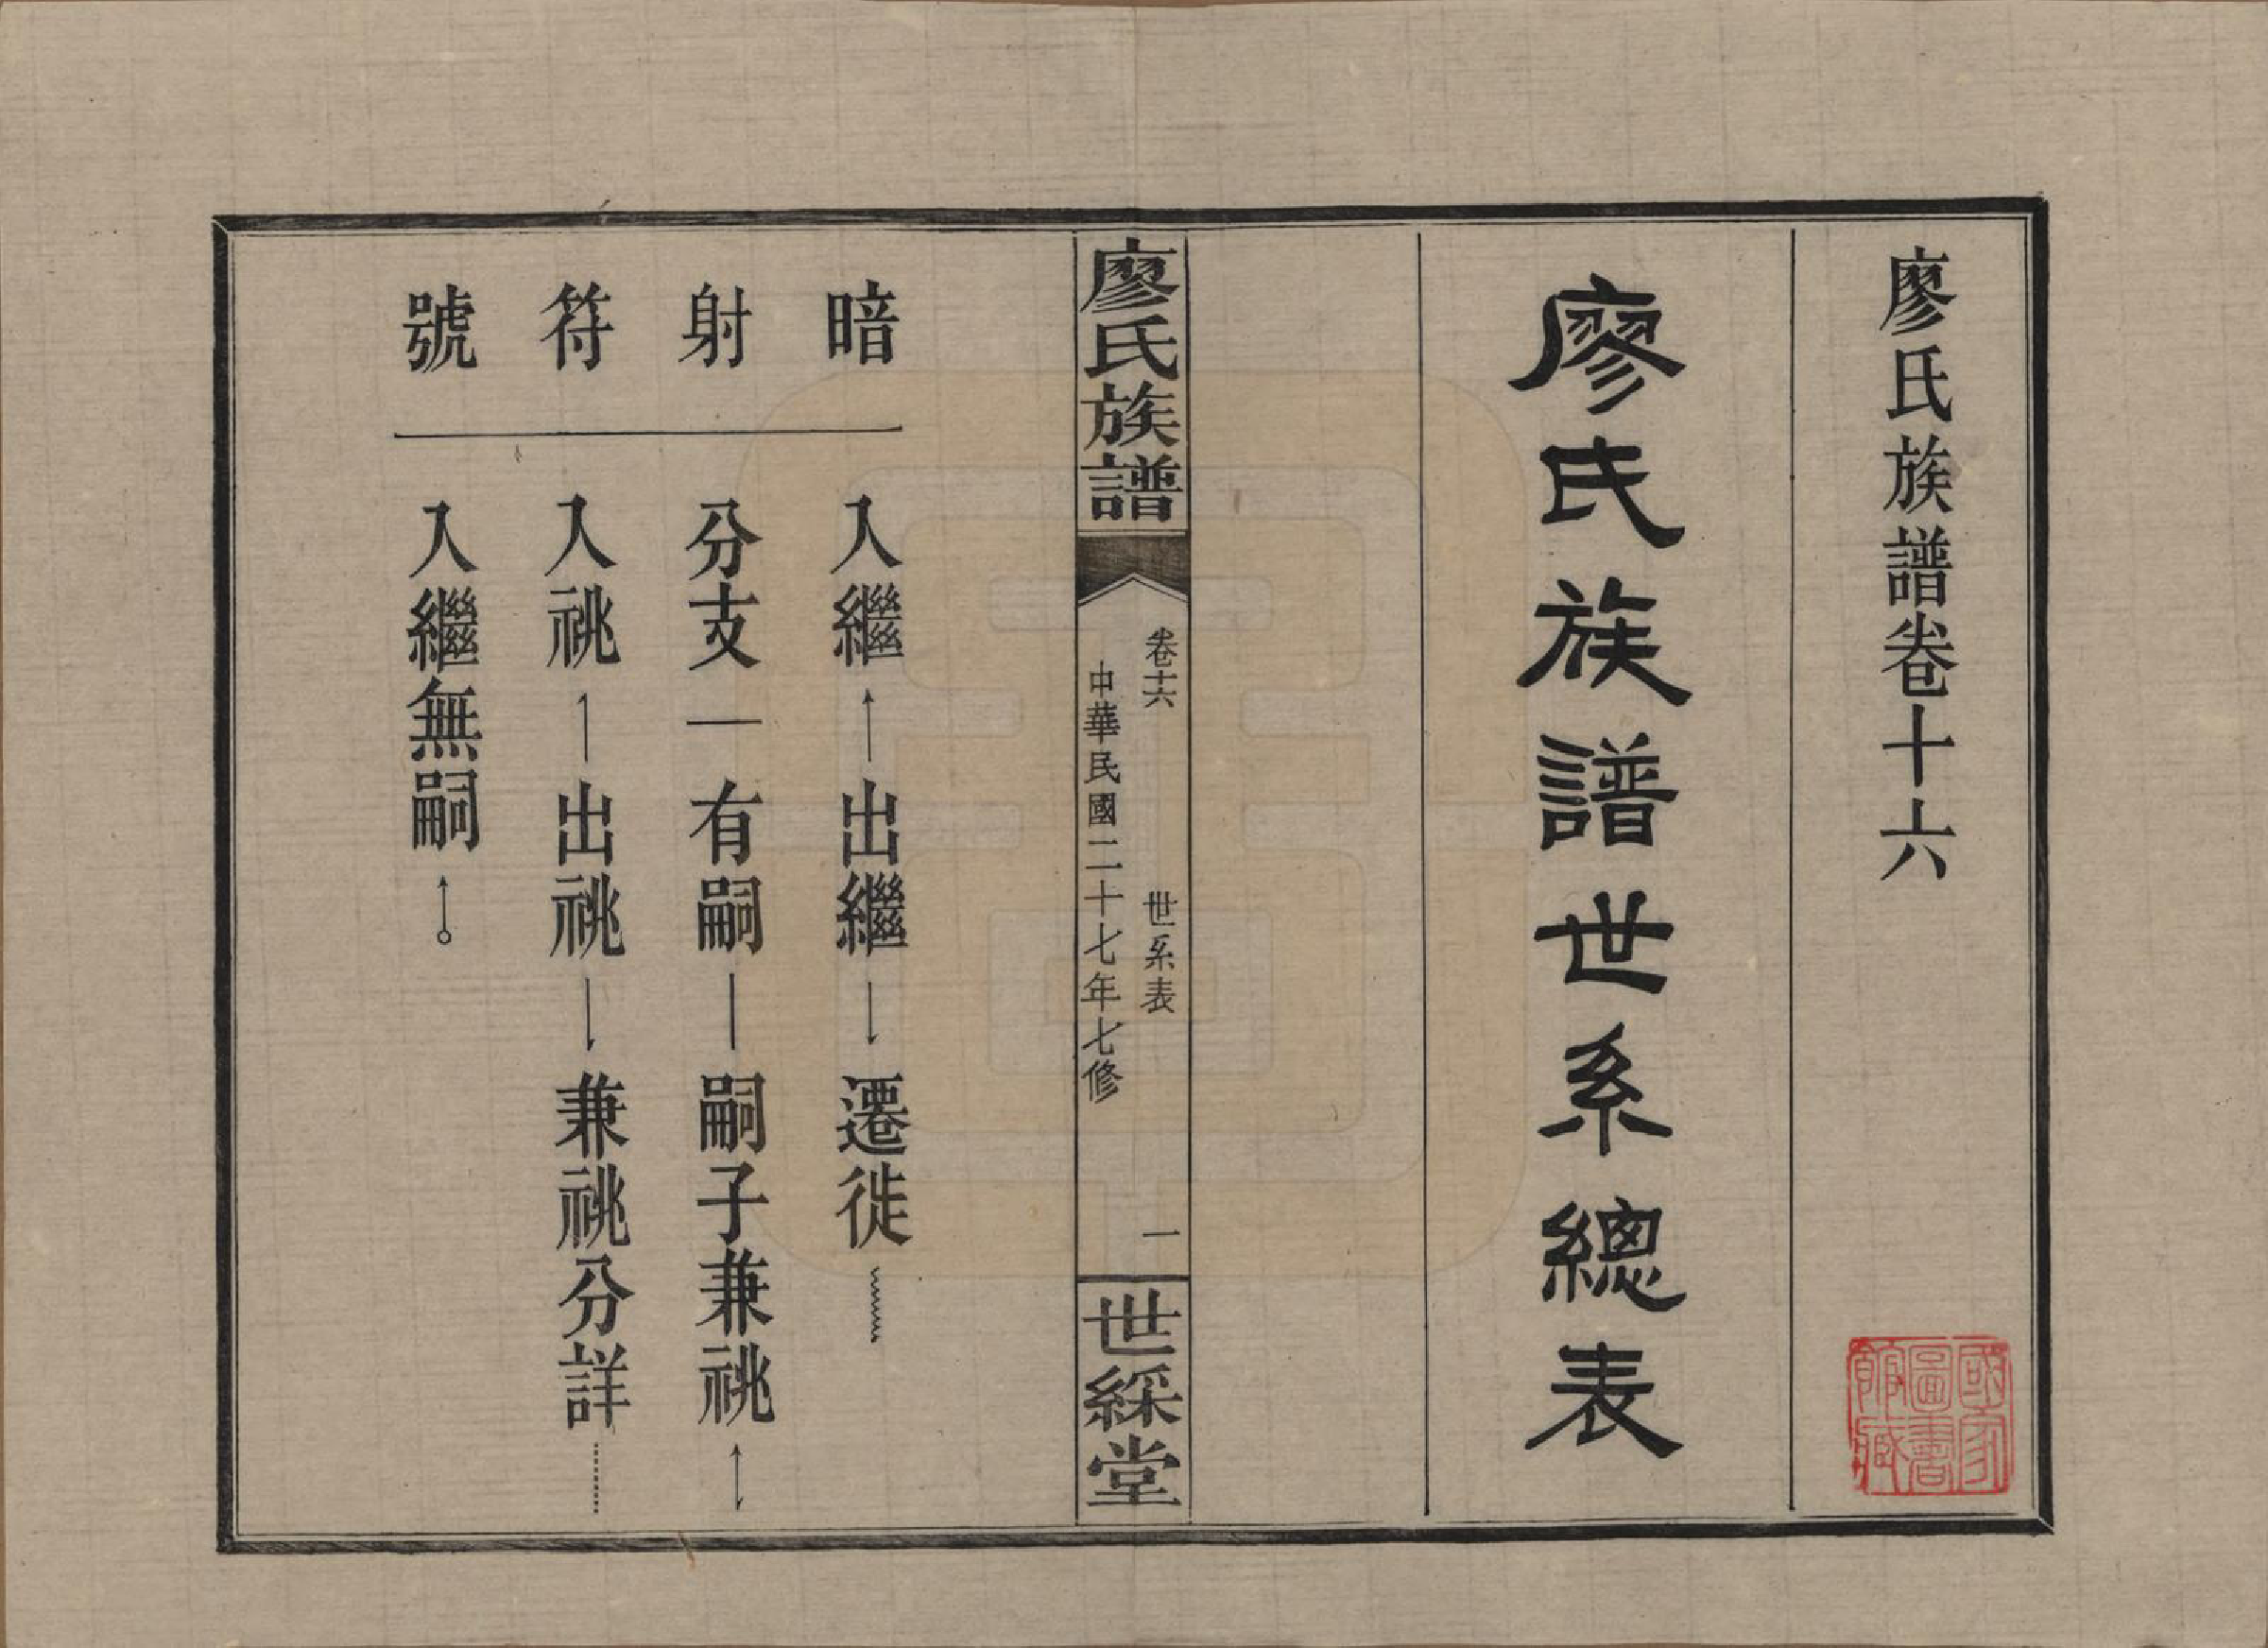 廖氏族譜卷十六
廖氏族譜世系總表
國家
圖書
館藏
廖氏族譜
卷十六 世系表 一
中華民國二十七年七修
世綵堂
暗射符號
入繼 出繼 遷徙
分支 有嗣 嗣子兼祧
入祧 出祧 兼祧分詳
入繼無嗣